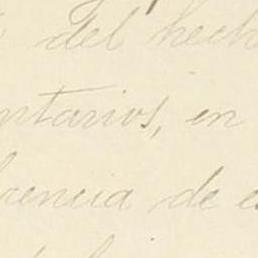 del hecho
ntarios, en
rencia de e